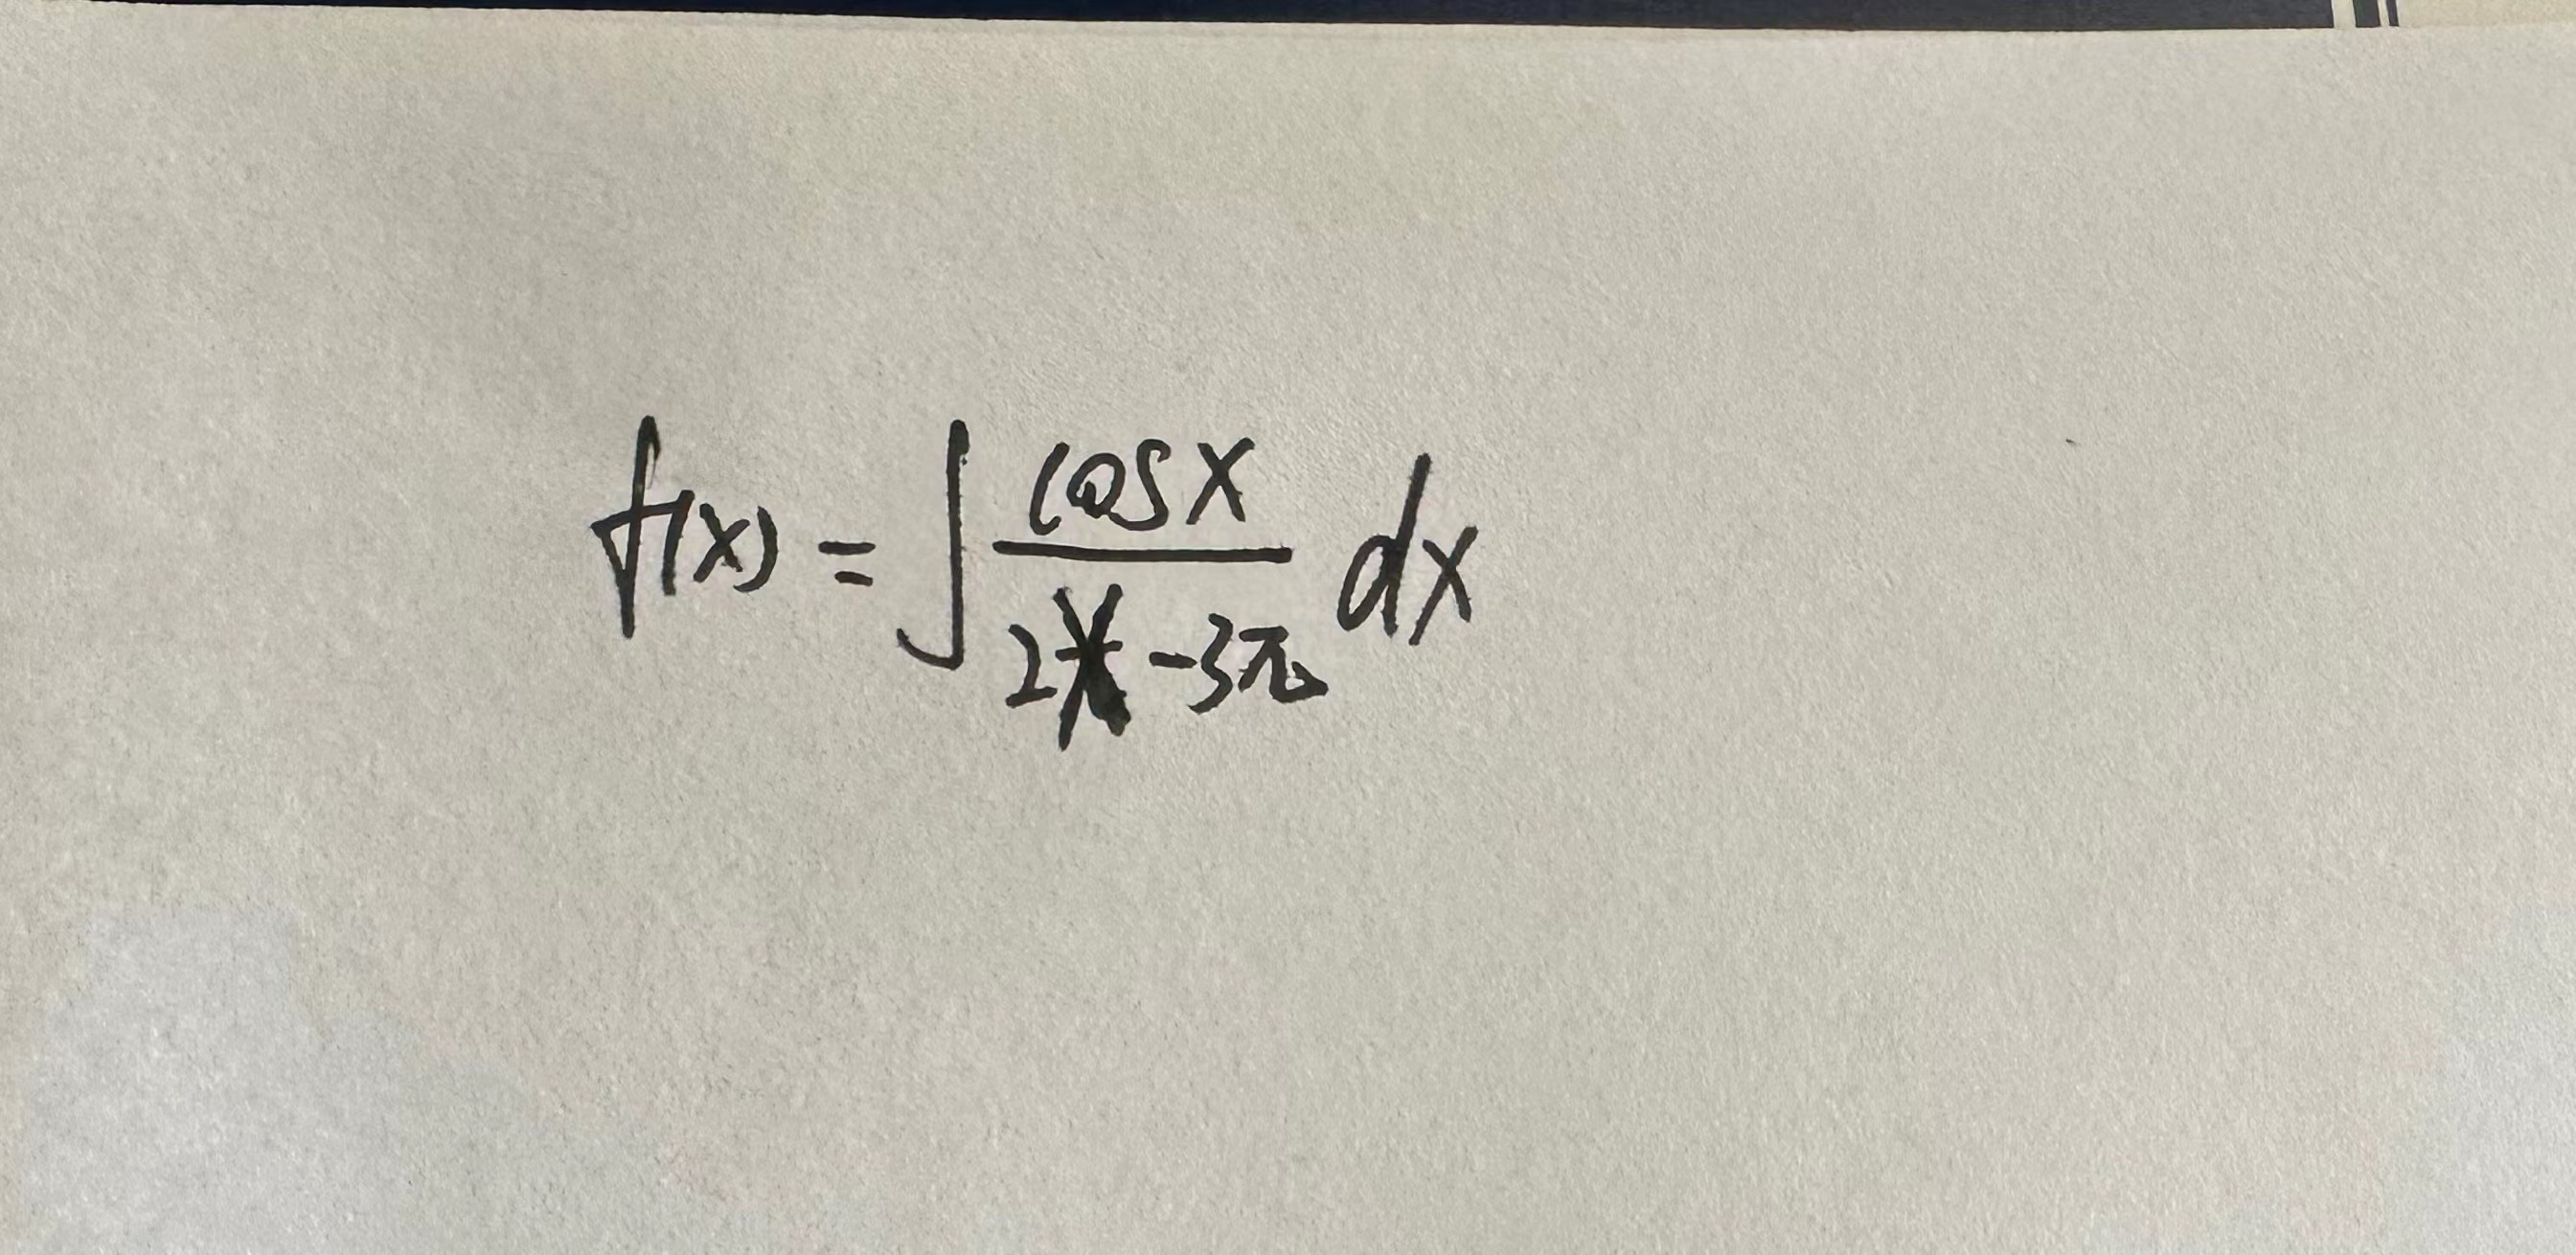 f(x) = ∫ cosx / (2x - 3π) dx